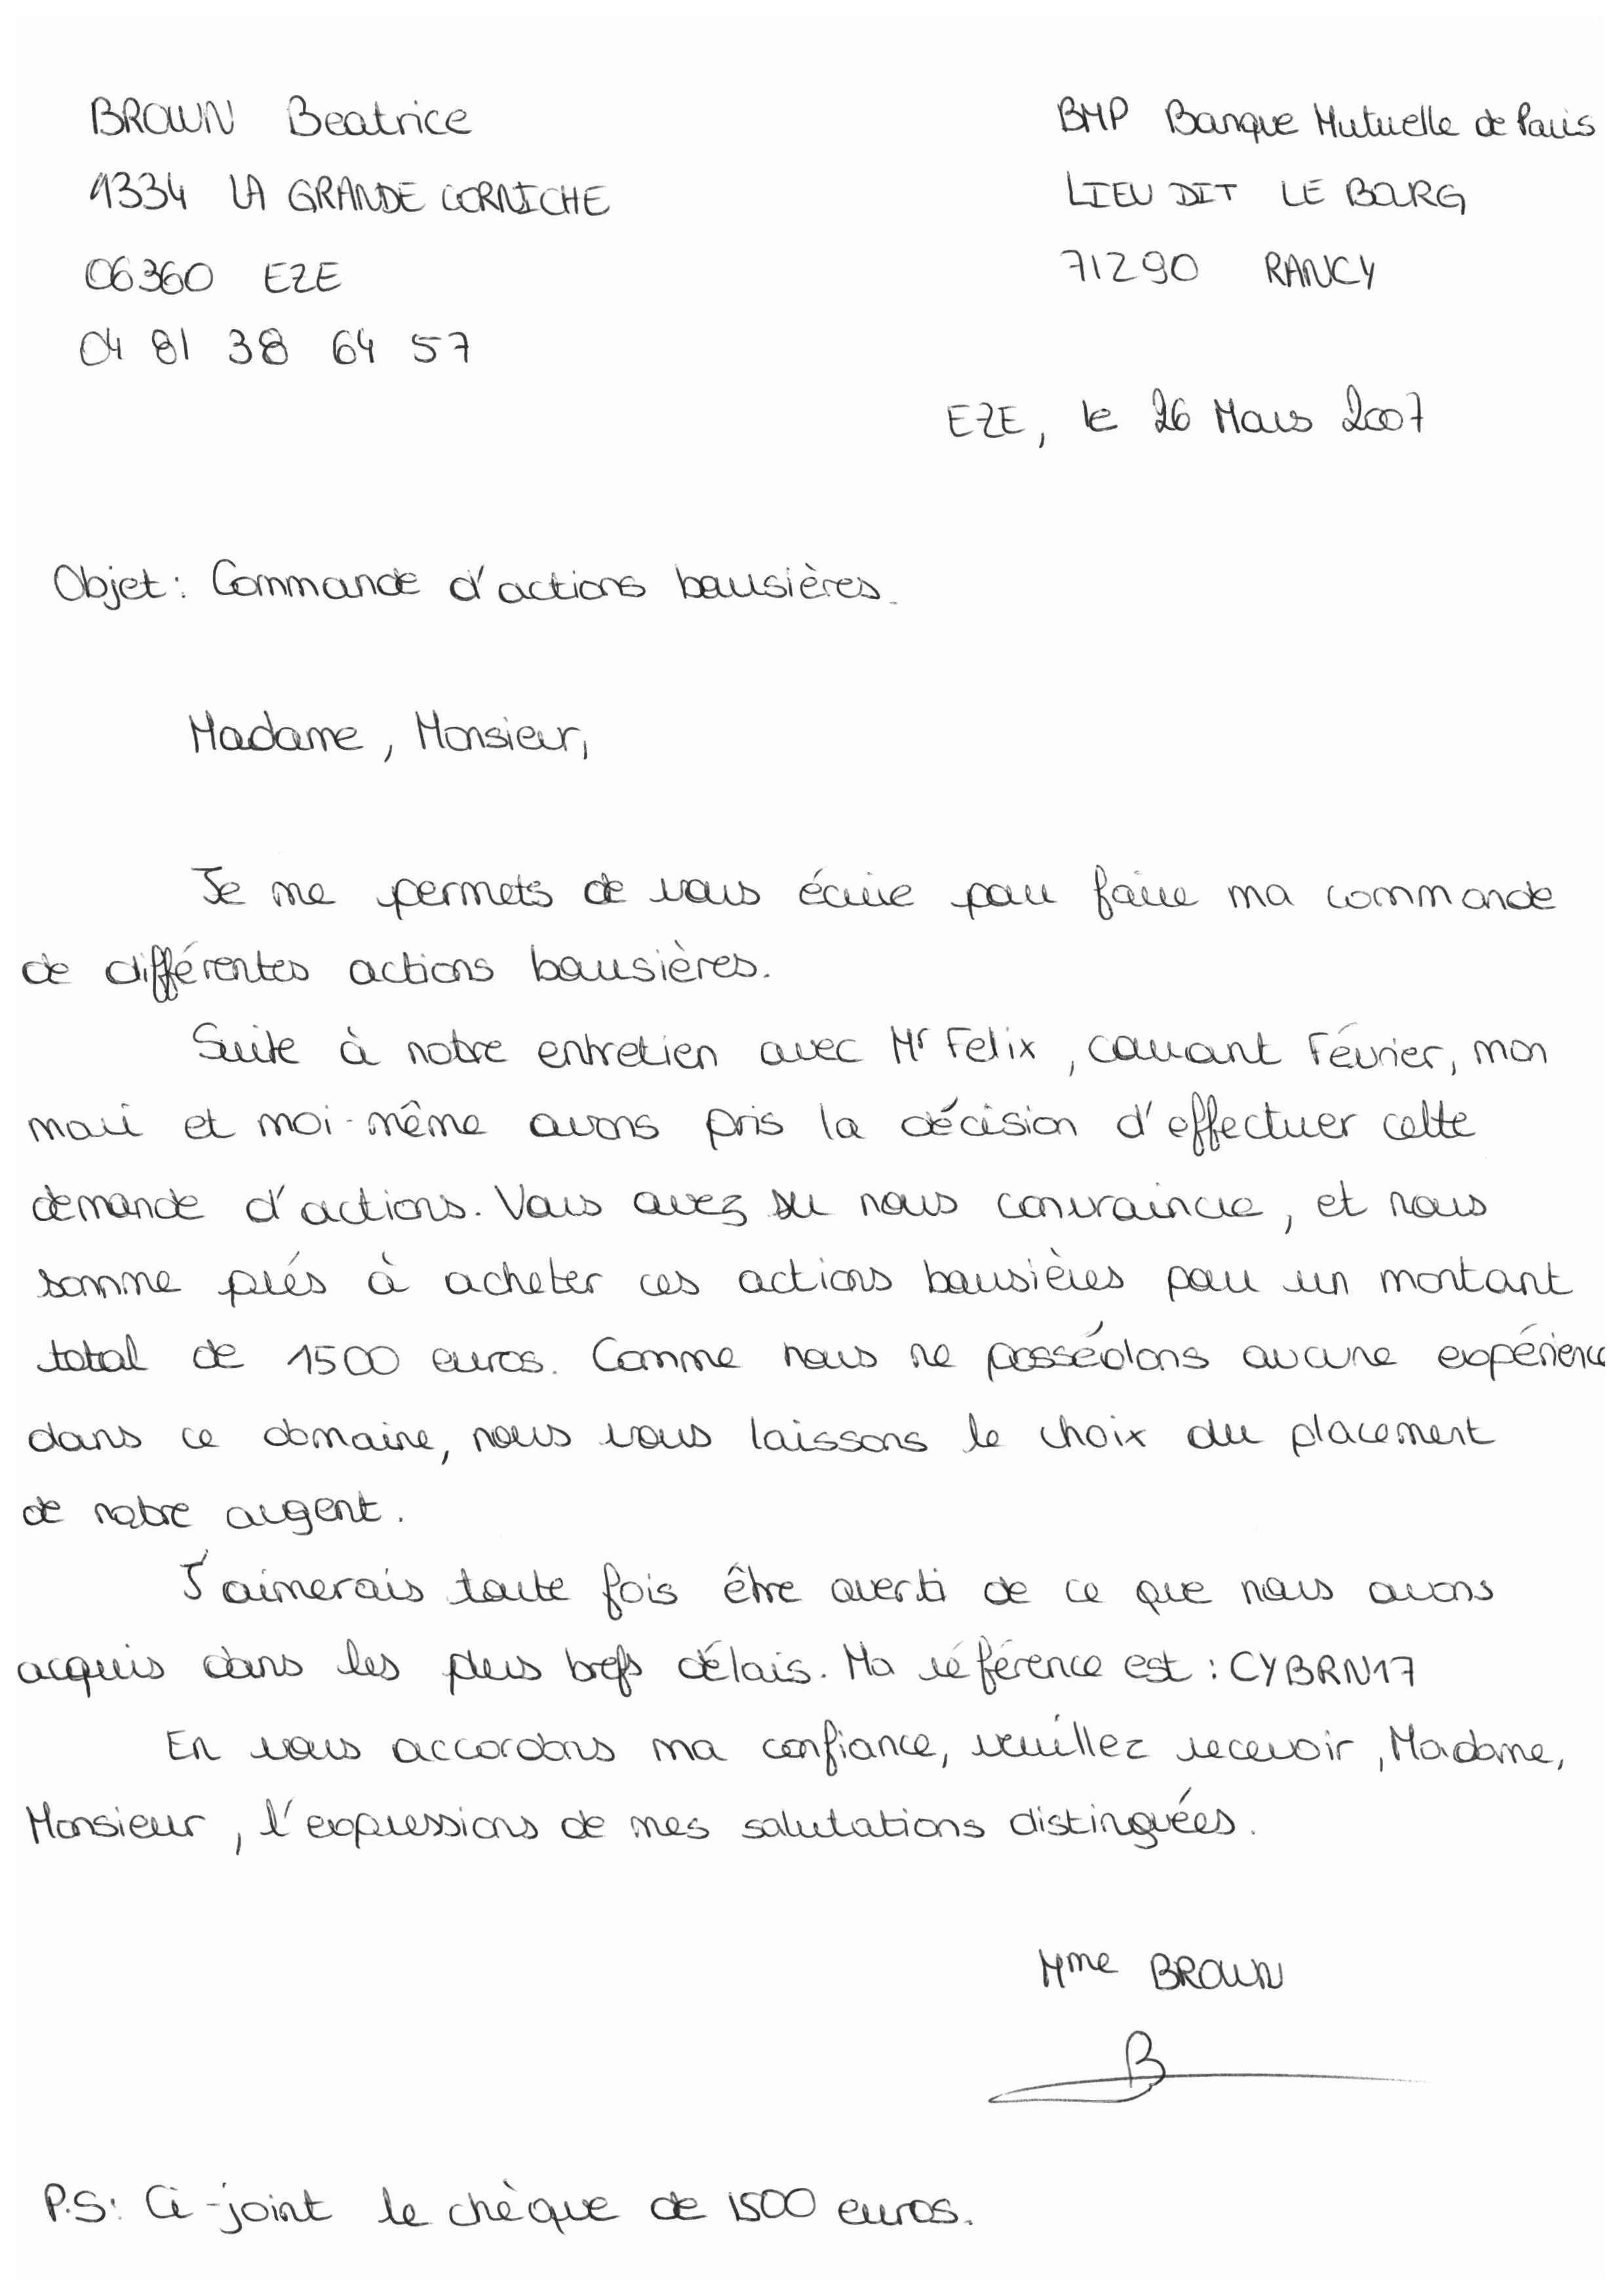 BROWN Beatrice
1334 LA GRANDE CORNICHE
06360 EZE
04 81 38 64 57
BMP Banque Mutuelle de Paris
LIEU DIT LE BOURG
71290 RANCY
EZE, le 26 Mars 2007
Objet : Commande d'actions boursières.
Madame, Monsieur,
Je me permets de vous écrire pour faire ma commande
de différentes actions boursières.
Suite à notre entretien avec Mr Felix, courant Février, mon
mari et moi-même avons pris la décision d'effectuer cette
demande d'actions. Vous avez su nous convaincre, et nous
somme prés à acheter ces actions boursières pour un montant
total de 1500 euros. Comme nous ne possédons aucune expérience
dans ce domaine, nous vous laissons le choix du placement
de notre argent.
J'aimerais toute fois être averti de ce que nous avons
acquis dans les plus brefs délais. Ma référence est : CYBRN17
En vous accordons ma confiance, veuillez recevoir, Madame,
Monsieur, l'expressions de mes salutations distinguées.
Mme BROWN
B
P.S: Ci-joint le chèque de 1500 euros.